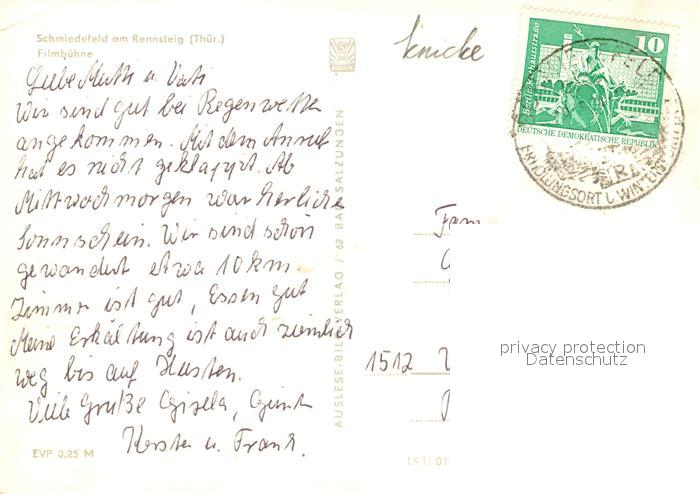 Schmiedefeld am Rennsteig (Thür.)
Filmbühne
Liebe Mutti u. Vati
Wir sind gut bei Regenwetter
angekommen. Mit dem Anruf
hat es nicht geklappt. Ab
Mittwochmorgen war herrlicher
Sonnschein. Wir sind schon
gewandert etwa 10 km.
Zimmer ist gut, Essen gut
Meine Erkältung ist auch ziemlich
weg bis auf Husten.
Viele Grüße Gisela,
Kersten u. Frank.
EVP 0,25 M
AUSLESE-BILD-VERLAG / 62 BAD SALZUNGEN
knicke
Berlin, Rathausstraße
10
DEUTSCHE DEMOKRATISCHE REPUBLIK
ERHOLUNGSORT U. WINTERSP
Fam
1512
privacy protection
Datenschutz